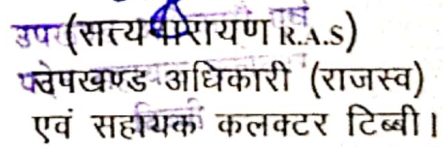 (सत्यनारायण R.A.S)
उपखण्ड अधिकारी (राजस्व)
एवं सहायक कलक्टर टिब्बी।